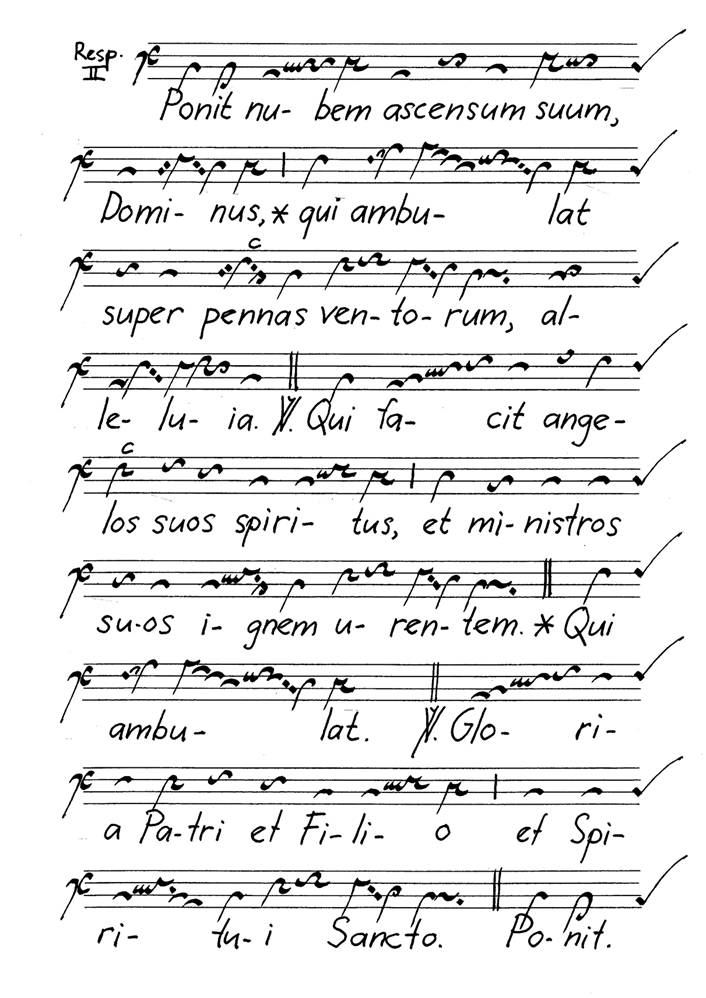 Resp. II
Ponit nu- bem ascensum suum,
Domi- nus, * qui ambu- lat
c
super pennas ven- to- rum, al-
le- lu- ia. ℣. Qui fa- cit ange-
c
los suos spiri- tus, et mi- nistros
su-os i- gnem u- ren- tem. * Qui
ambu- lat. ℣. Glo- ri-
a Pa-tri et Fi-li- o et Spi-
ri- tu- i Sancto. Po- nit.